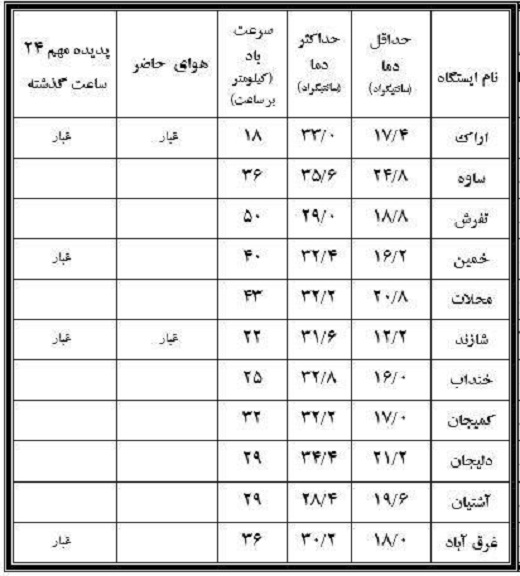 نام ایستگاه	حداقل دما (سانتیگراد)	حداکثر دما (سانتیگراد)	سرعت باد (کیلومتر بر ساعت)	هوای حاضر	پدیده مهم ۲۴ ساعت گذشته
اراک	۱۷/۴	۳۳/۰	۱۸	غبار	غبار
ساوه	۲۴/۸	۳۵/۶	۳۶
تفرش	۱۸/۸	۲۹/۰	۵۰
خمین	۱۶/۲	۳۲/۴	۴۰		غبار
محلات	۲۰/۸	۳۲/۲	۴۳
شازند	۱۲/۲	۳۱/۶	۲۲	غبار	غبار
خنداب	۱۶/۰	۳۲/۸	۲۵
کمیجان	۱۷/۰	۳۲/۲	۳۲
دلیجان	۲۱/۲	۳۴/۴	۲۹
آشتیان	۱۹/۶	۲۸/۴	۲۹
غرق آباد	۱۸/۰	۳۰/۲	۳۶		غبار